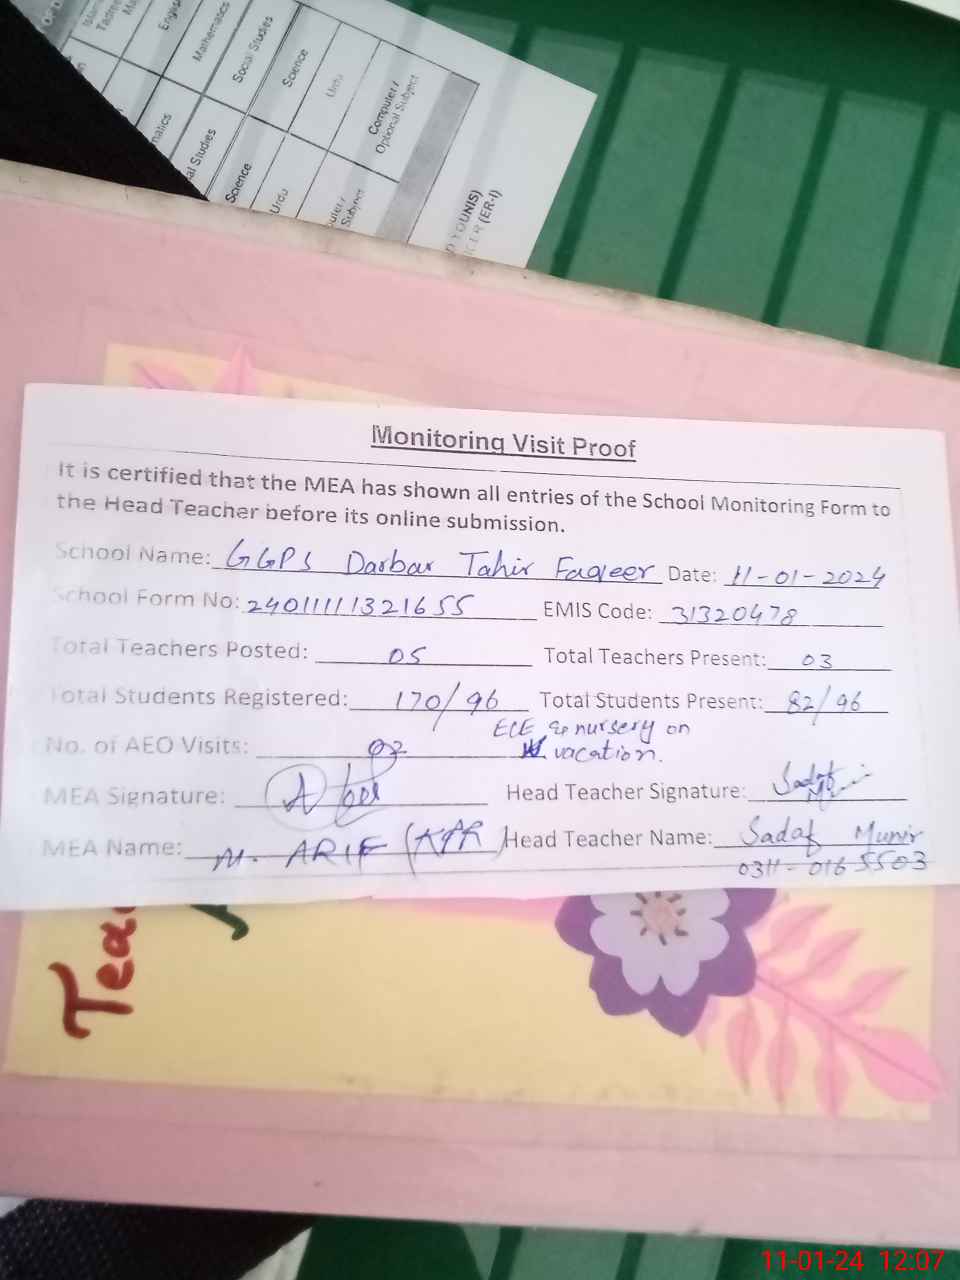 Mathematics
Social Studies
Science
Urdu
Computer /
Optional Subject
al Studies
Science
Urdu
Subject
YOUNIS)
CER (ER-I)
Monitoring Visit Proof
It is certified that the MEA has shown all entries of the School Monitoring Form to
the Head Teacher before its online submission.
School Name: GGPS Darbar Tahir Faqeer Date: 11-01-2024
School Form No: 24011111321655 EMIS Code: 31320478
Total Teachers Posted: 05 Total Teachers Present: 03
Total Students Registered: 170/96 Total Students Present: 82/96
ECE & nursery on
No. of AEO Visits: 02 vacation.
MEA Signature: Head Teacher Signature:
MEA Name: M. ARIF Head Teacher Name: Sadaf Munir
0311-0165503
Tea
11-01-24 12:07